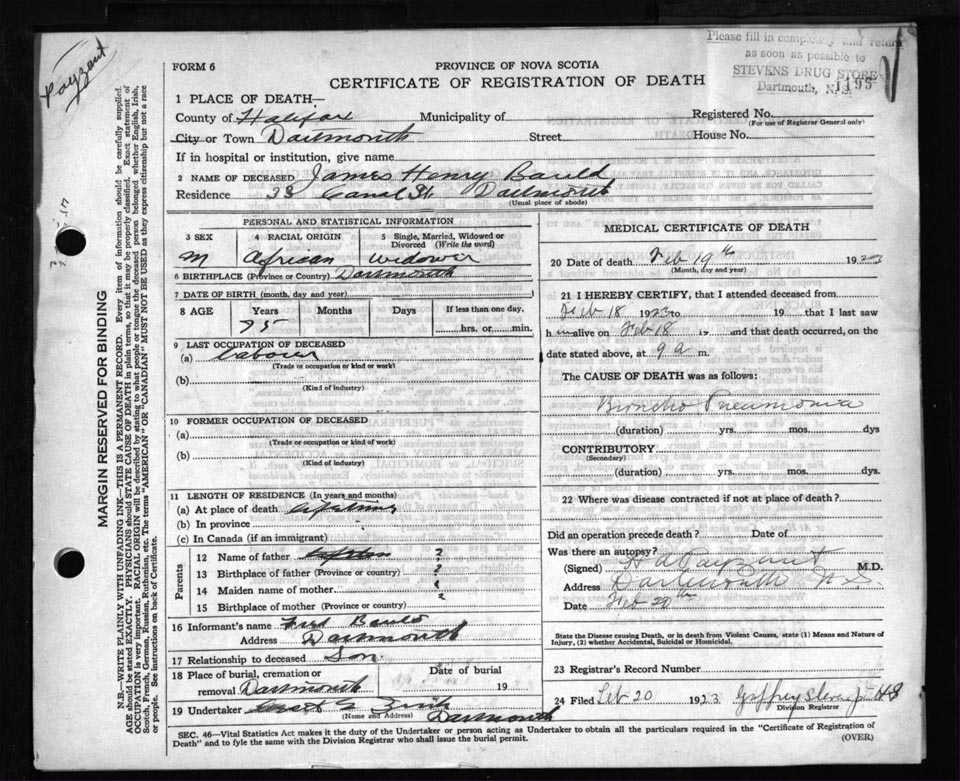 Payzant
Please fill in completely and return
as soon as possible to
STEVENS DRUG STORE
Dartmouth, N.S.
1195
FORM 6
PROVINCE OF NOVA SCOTIA
CERTIFICATE OF REGISTRATION OF DEATH
1 PLACE OF DEATH—
County of Halifax Municipality of Registered No.
(For use of Registrar General only)
City or Town Dartmouth Street House No.
If in hospital or institution, give name
2 NAME OF DECEASED James Henry Bauld
Residence 33 Canal St. Dartmouth
(Usual place of abode)
PERSONAL AND STATISTICAL INFORMATION
3 SEX 4 RACIAL ORIGIN 5 Single, Married, Widowed or Divorced (Write the word)
M African Widower
6 BIRTHPLACE (Province or Country) Dartmouth
7 DATE OF BIRTH (month, day and year)
8 AGE Years Months Days If less than one day,
75 hrs. or min.
9 LAST OCCUPATION OF DECEASED
(a) Laborer
(Trade or occupation or kind or work)
(b)
(Kind of industry)
10 FORMER OCCUPATION OF DECEASED
(a)
(Trade or occupation or kind of work)
(b)
(Kind of industry)
11 LENGTH OF RESIDENCE (In years and months)
(a) At place of death Lifetime
(b) In province
(c) In Canada (if an immigrant)
Parents
12 Name of father ?
13 Birthplace of father (Province or country) ?
14 Maiden name of mother ?
15 Birthplace of mother (Province or country)
16 Informant's name Fred Bauld
Address Dartmouth
17 Relationship to deceased Son
18 Place of burial, cremation or Date of burial
removal Dartmouth 19
19 Undertaker Dartmouth
(Name and Address)
MEDICAL CERTIFICATE OF DEATH
20 Date of death Feb 19th 1923
(Month, day and year)
21 I HEREBY CERTIFY, that I attended deceased from
Feb 18 1923 to 19 that I last saw
h alive on Feb 18 19 and that death occurred, on
date stated above, at 9 a m.
The CAUSE OF DEATH was as follows:
Broncho Pneumonia
(duration) yrs. mos. dys
CONTRIBUTORY
(Secondary)
(duration) yrs. mos. dys.
22 Where was disease contracted if not at place of death?
Did an operation precede death? Date of
Was there an autopsy?
(Signed) H A Payzant M.D.
Address Dartmouth N.S.
Date Feb 20th
State the Disease causing Death, or in death from Violent Causes, state (1) Means and Nature of
Injury, (2) whether Accidental, Suicidal or Homicidal.
23 Registrar's Record Number
24 Filed Feb 20 1923 Gaffrey Stevens
Division Registrar
SEC. 46—Vital Statistics Act makes it the duty of the Undertaker or person acting as Undertaker to obtain all the particulars required in the "Certificate of Registration of
Death" and to fyle the same with the Division Registrar who shall issue the burial permit.
(OVER)
MARGIN RESERVED FOR BINDING
N.B.—WRITE PLAINLY WITH UNFADING INK—THIS IS A PERMANENT RECORD. Every item of information should be carefully supplied.
AGE should be stated EXACTLY. PHYSICIANS should STATE CAUSE OF DEATH in plain terms, so that it may be properly classified. Exact statement of
OCCUPATION is very important. RACIAL ORIGIN will be described by stating to what people or tongue the deceased person belonged whether English, Irish,
Scotch, French, German, Russian, Ruthenian, etc. The terms "AMERICAN" OR "CANADIAN" MUST NOT BE USED as they express citizenship but not a race
or people. See instructions on back of Certificate.